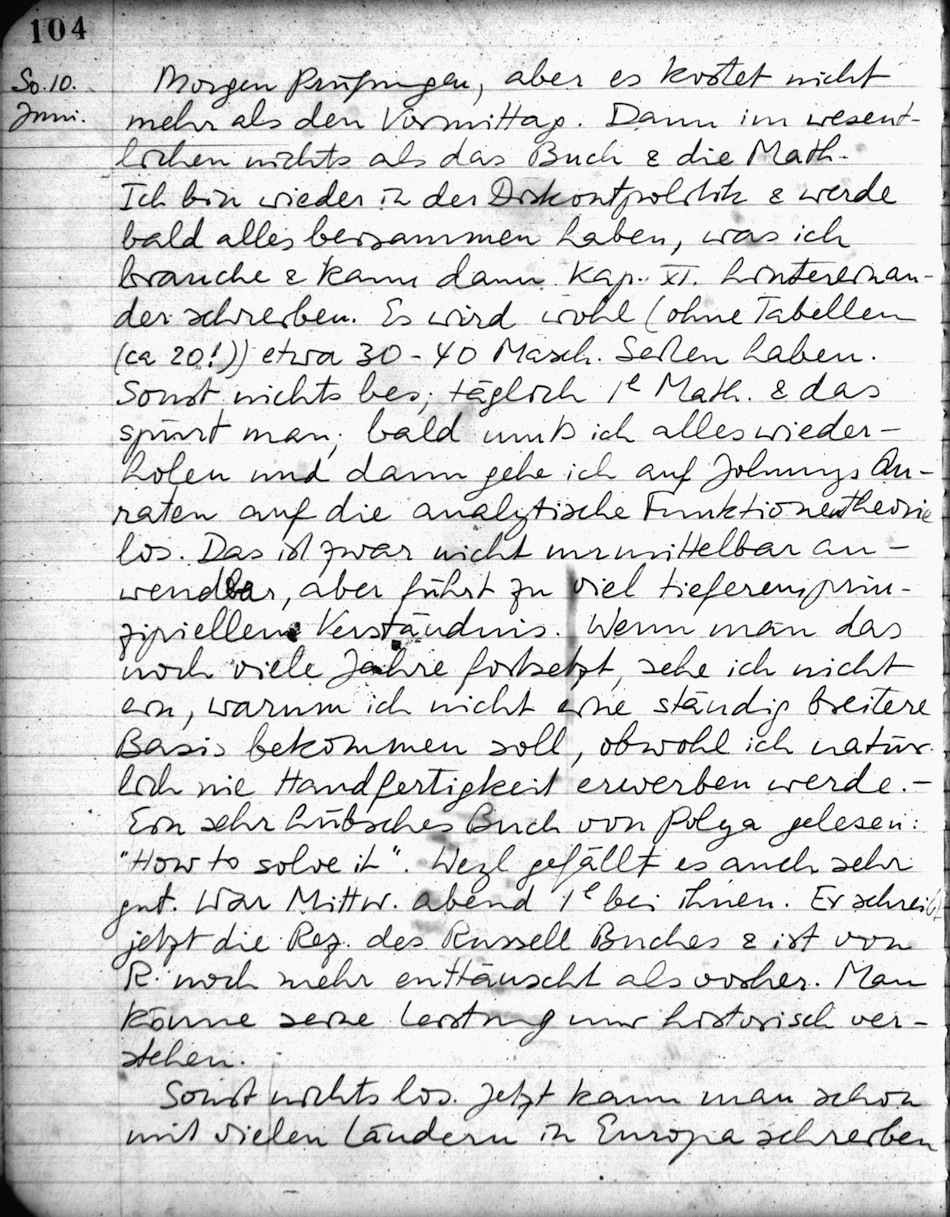 104
So. 10. Morgen Prüfungen, aber es kostet nicht
Juni. mehr als den Vormittag. Dann im wesent-
lichen nichts als das Buch & die Math.
Ich bin wieder in der Diskontpolitik & werde
bald alles beisammen haben, was ich
brauche & kann dann Kap. XI. hintereinan-
der schreiben. Es wird wohl (ohne Tabellen
(ca 20!)) etwa 30-40 Masch. Seiten haben.
Sonst nichts bes; täglich 1e Math. & das
spürt man; bald muß ich alles wieder-
holen und dann gehe ich auf Johnnys An-
raten auf die analytische Funktionentheorie
los. Das ist zwar nicht unmittelbar an-
wendbar, aber führt zu viel tieferem, prin-
zipiellem Verständnis. Wenn man das
noch viele Jahre fortsetzt, sehe ich nicht
ein, warum ich nicht eine ständig breitere
Basis bekommen soll, obwohl ich natür-
lich nie Handfertigkeit erwerben werde. –
Ein sehr hübsches Buch von Polya gelesen:
"How to solve it". Weyl gefällt es auch sehr
gut. War Mittw. abend 1e bei ihnen. Er schreibt
jetzt die Rez. des Russell Buches & ist von
R. noch mehr enttäuscht als vorher. Man
könne seine Leistung nur historisch ver-
stehen.
Sonst nichts los. Jetzt kann man schon
mit vielen Ländern in Europa schreiben